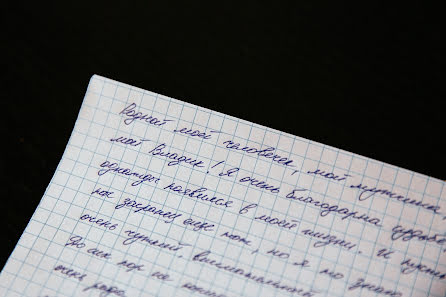 Родной мой человечек, мой мужчина,
мой Владик! Я очень благодарна судьбе
однажды появился в моей жизни. И пусть
нас
еще
но я
знаю
очень чуткий, внимательный
До сих пор не
очень рада